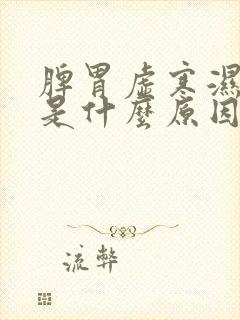 脾胃虛寒濕
是什麼原因
流弊